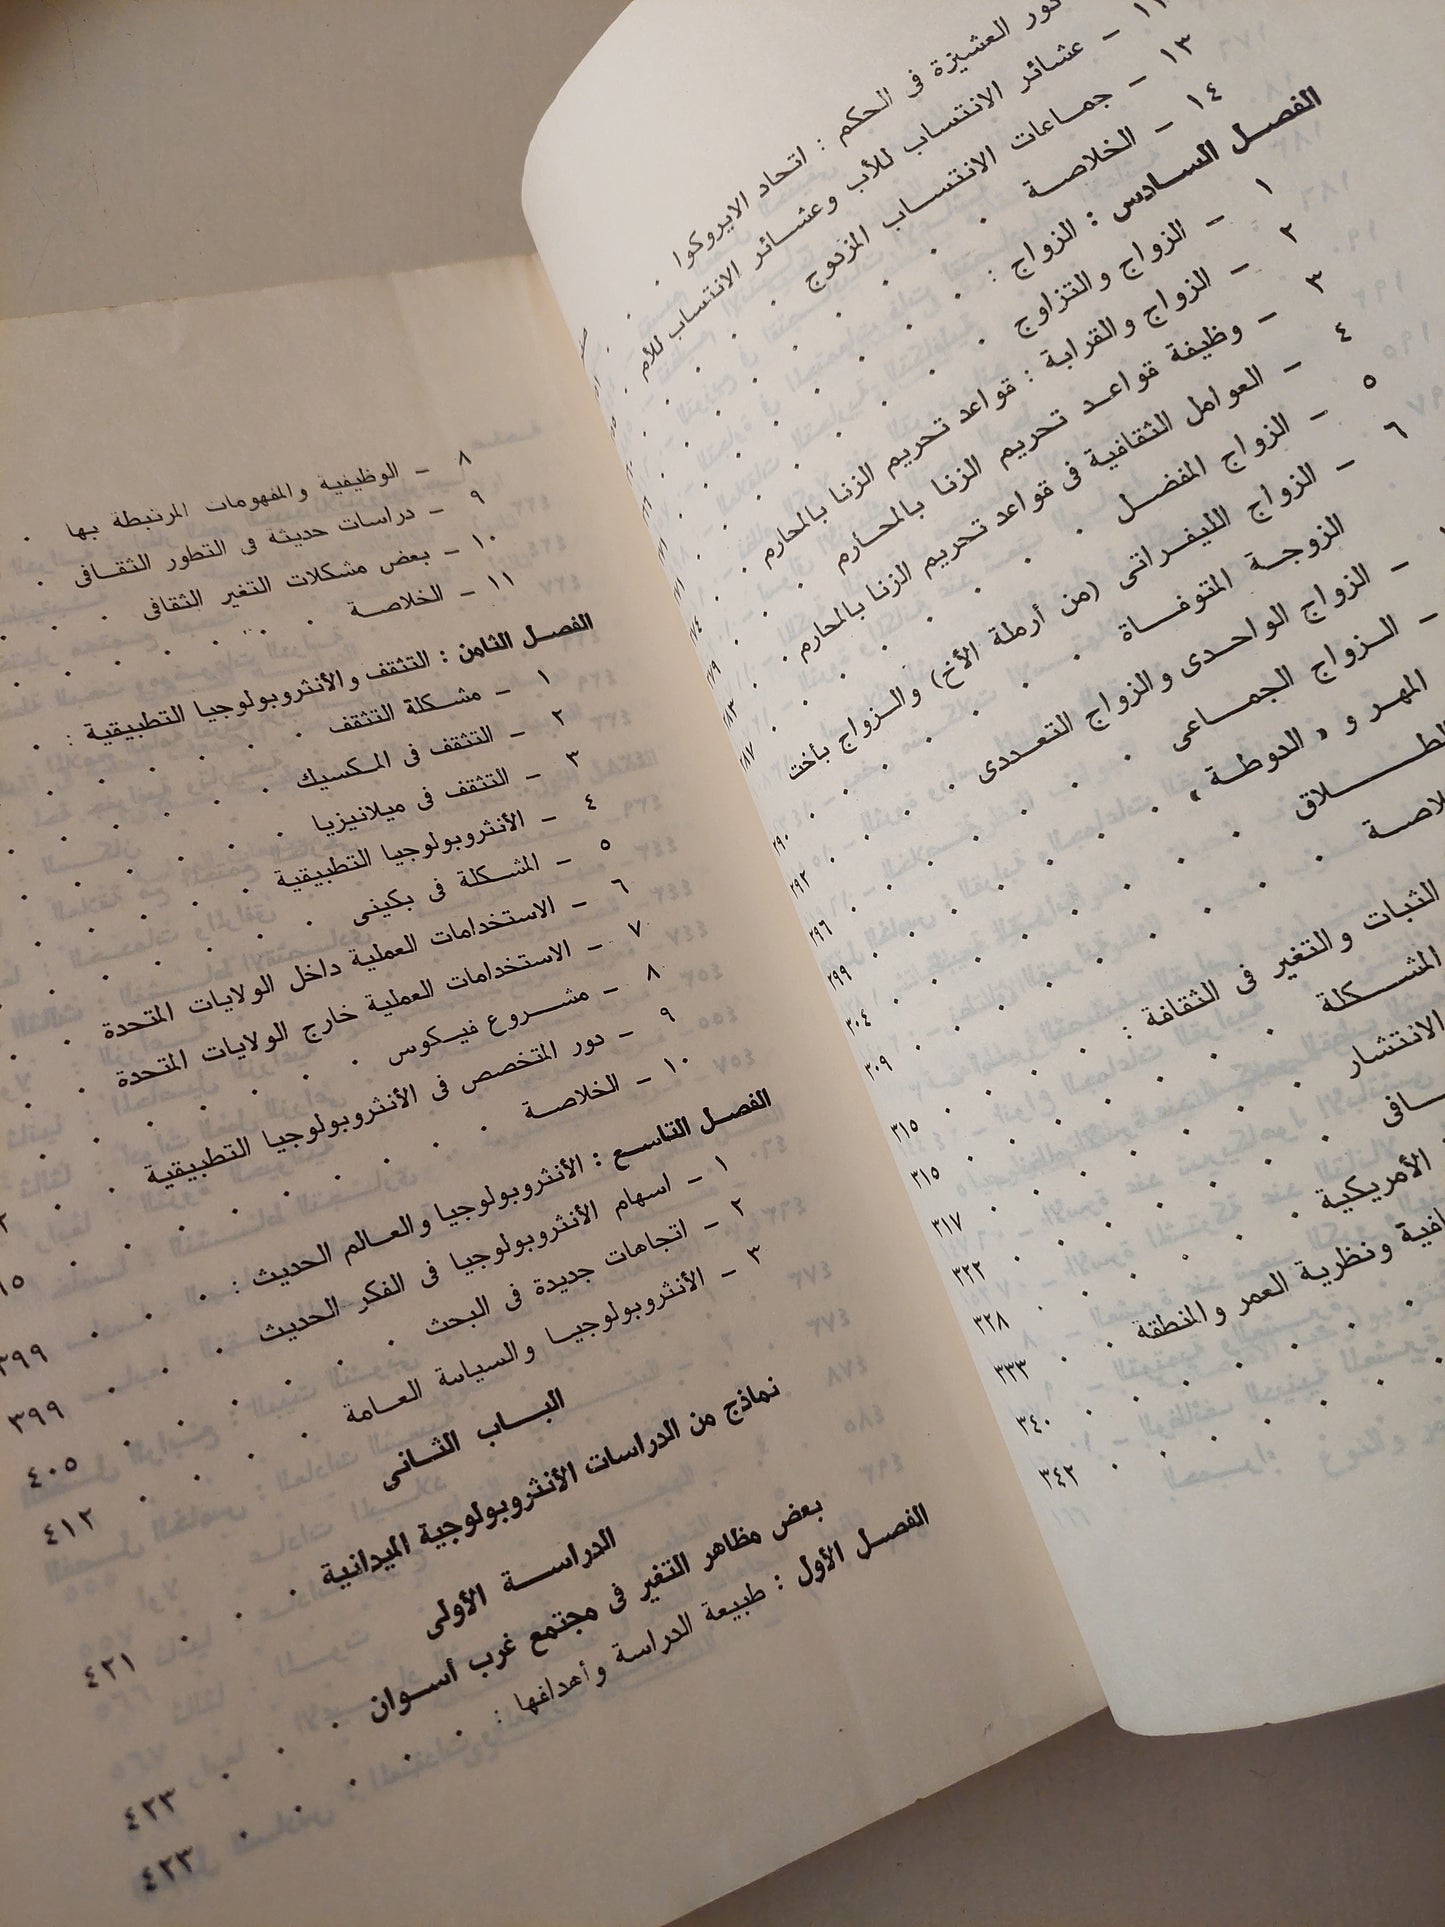 دور العشيرة فى الحكم : اتحاد الايروكوا .
١٢ – عشائر الانتساب للأب وعشائر الانتساب للأم .
١٣ – جماعات الانتساب المزدوج
١٤ – الخلاصة
الفصل السادس : الزواج :
١ – الزواج والتزاوج
٢ – الزواج والقرابة : قواعد تحريم الزنا بالمحارم .
٣ – وظيفة قواعد تحريم الزنا بالمحارم
٤ – العوامل الثقافية فى قواعد تحريم الزنا بالمحارم .
٥ – الزواج المفضل
٦ – الزواج الليفراتى (من أرملة الأخ) والزواج بأخت
الزوجة المتوفاة ٢٩٠
– الزواج الواحدى والزواج التعددى ٢٩٢
– الزواج الجماعى ٢٩٦
المهر و « الدوطة » ٢٩٩
الطلاق ٣٠٤
٣٠٩
الثبات والتغير فى الثقافة : ٣١٥
المشكلة ٣١٥
الانتشار ٣١٧
٣٢٢
الأمريكية ٣٢٨
ونظرية العمر والمنطقة ٣٣٣
٣٤٠
٣٤٢
٨ – الوظيفية والمفهومات المرتبطة بها .
٩ – دراسات حديثة فى التطور الثقافى
١٠ – بعض مشكلات التغير الثقافى
١١ – الخلاصة
الفصل الثامن : التثقف والأنثروبولوجيا التطبيقية :
١ – مشكلة التثقف
٢ – التثقف فى المكسيك
٣ – التثقف فى ميلانيزيا
٤ – الأنثروبولوجيا التطبيقية
٥ – المشكلة فى بكينى
٦ – الاستخدامات العملية داخل الولايات المتحدة
٧ – الاستخدامات العملية خارج الولايات المتحدة
٨ – مشروع فيكوس
٩ – دور المتخصص فى الأنثروبولوجيا التطبيقية
١٠ – الخلاصة
الفصل التاسع : الأنثروبولوجيا والعالم الحديث : ٣٩٩
١ – اسهام الأنثروبولوجيا فى الفكر الحديث ٣٩٩
٢ – اتجاهات جديدة فى البحث ٤٠٥
٣ – الأنثروبولوجيا والسياسة العامة ٤١٢
الباب الثانى
نماذج من الدراسات الأنثروبولوجية الميدانية ٤٢١
الدراسة الأولى
بعض مظاهر التغير فى مجتمع غرب أسوان ٤٢٣
الفصل الأول : طبيعة الدراسة وأهدافها : ٤٢٣